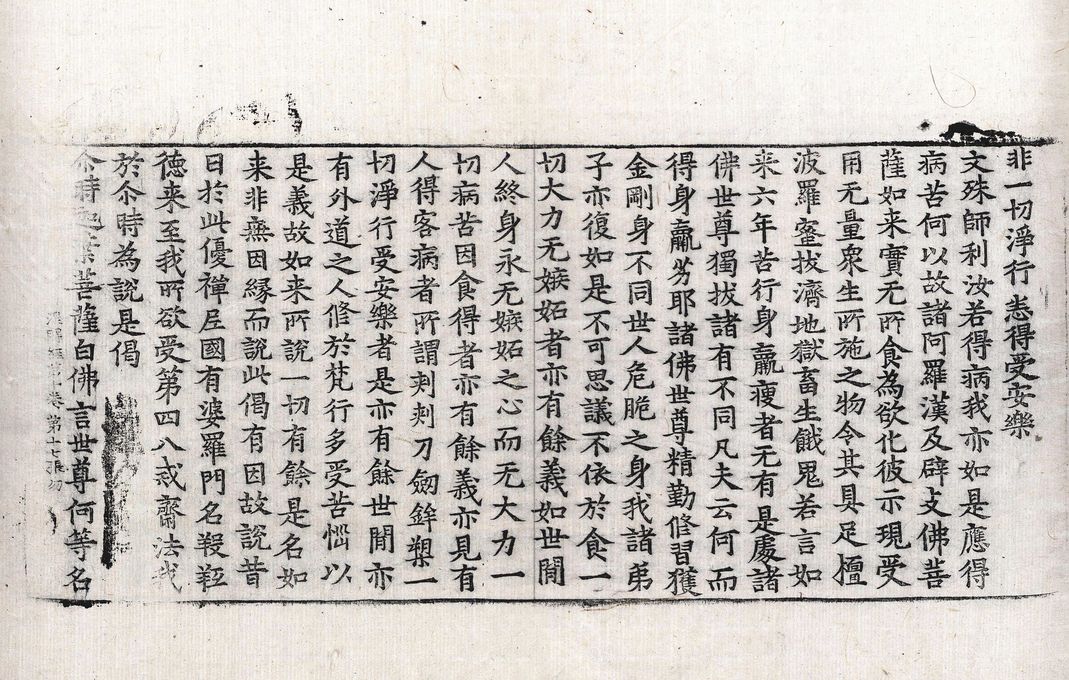 非一切淨行悉得受安樂
文殊師利汝若得病我亦如是應得
病苦何以故諸阿羅漢及辟支佛菩
薩如来實无所食為欲化彼示現受
用无量衆生所施之物令其具足檀
波羅蜜拔濟地獄畜生餓鬼若言如
来六年苦行身羸瘦者无有是處諸
佛世尊獨拔諸有不同凡夫云何而
得身羸劣耶諸佛世尊精勤修習獲
金剛身不同世人危脆之身我諸弟
子亦復如是不可思議不依於食一
切大力无嫉妬者亦有餘義如世間
人終身永无嫉妬之心而无大力一
切病苦因食得者亦有餘義亦見有
人得客病者所謂刺刺刀劒鉾矟一
切淨行受安樂者是亦有餘世間亦
有外道之人修於梵行多受苦惱以
是義故如来所說一切有餘是名如
来非無因緣而說此偈有因故說昔
日於此優禪尼國有婆羅門名羖羝
徳来至我所欲受第四八戒齋法我
於尒時為說是偈
尒時迦葉菩薩白佛言世尊何等名
卷第十 第十七張